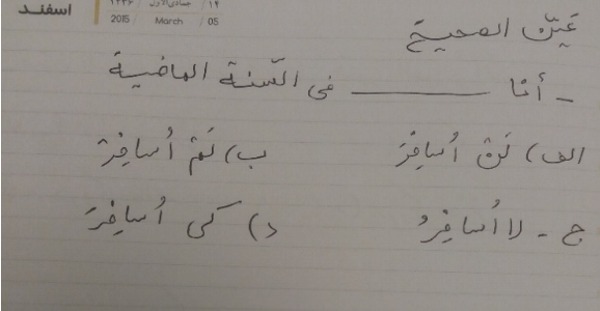 اسفند
۱۴۳۶ / جمادی‌الاول / ۱۴
2015 / March / 05
عَیِّن الصحیح
- أنا ــــــــــ فی السّنة الماضیة
الف) لَن أُسافِرَ ب) لَمْ أُسافِرْ
ج - لا أُسافِرُ د) کَی أُسافِرَ